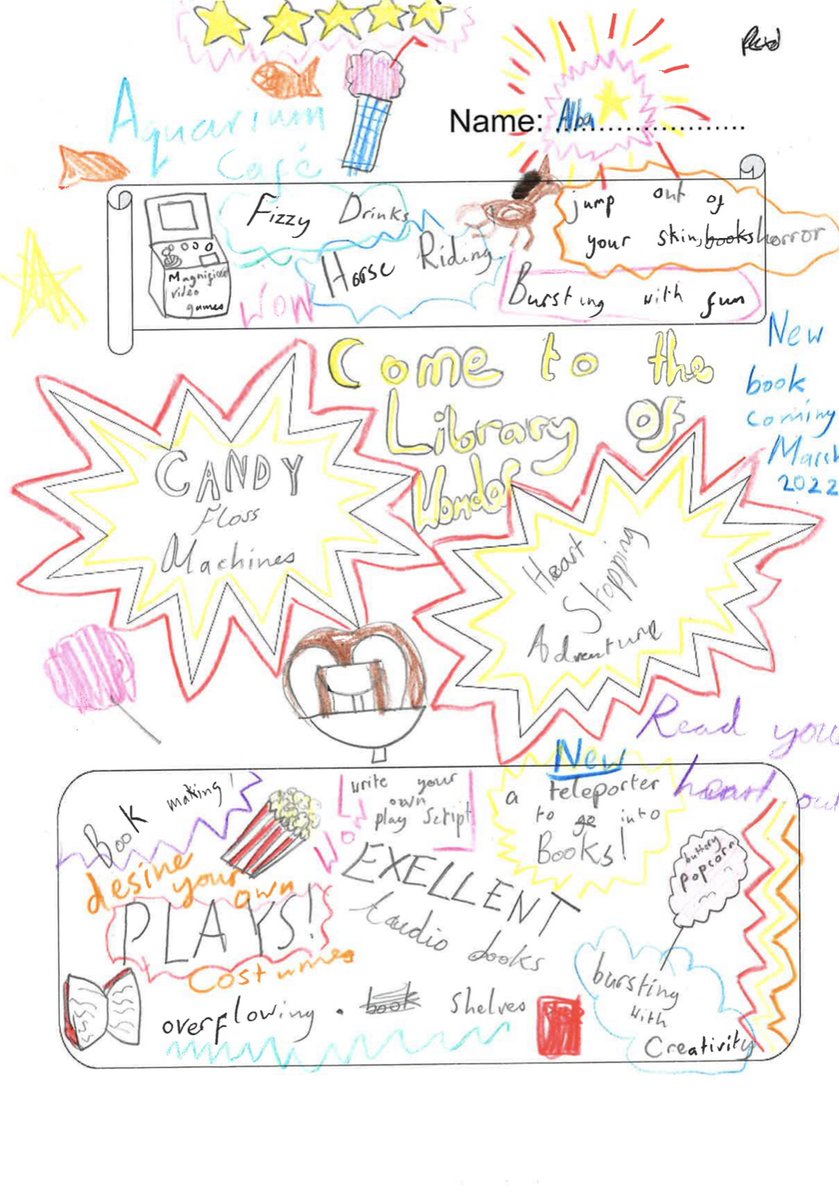 Aquarium
Café
Name: Alba
Fizzy Drinks
jump out of
your skin, books horror
Magnificent
video
games
Horse Riding
WOW
Bursting with fun
New
book
coming
March
2022
Come to the
Library of
Wonder
CANDY
Floss
Machines
Heart
Stopping
Adventure
Read your
heart out
New
Book making!
write your
own
play script
WOW
a teleporter
to go into
Books!
desine
your
own
PLAYS!
Costumes
EXELLENT
Audio books
buttery
Popcorn
overflowing book shelves
bursting
with
Creativity